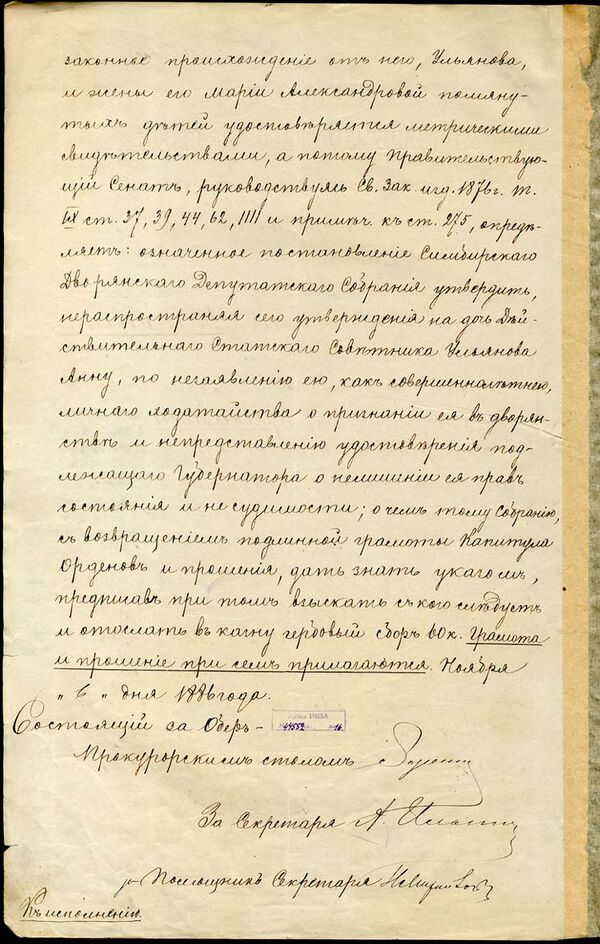 законное происхожденіе отъ него, Ульянова,
и жены его Маріи Александровой помяну-
тыхъ дѣтей удостовѣряется метрическими
свидѣтельствами, а потому Правительствую-
щій Сенатъ, руководствуясь Св. Зак. изд. 1876 г. т.
IX ст. 37, 39, 44, 62, 1111 и примѣч. къ ст. 275, опредѣ-
ляетъ: означенное постановленіе Симбирскаго
Дворянскаго Депутатскаго Собранія утвердить,
нераспространяя сего утвержденія на дочь Дѣй-
ствительнаго Статскаго Совѣтника Ульянова
Анну, по незаявленію ею, какъ совершеннолѣтнею,
личнаго ходатайства о признаніи ея въ дворян-
ствѣ и непредставленію удостовѣренія под-
лежащаго Губернатора о нелишеніи ея правъ
состоянія и не судимости; о чемъ тому Собранію,
съ возвращеніемъ подлинной грамоты Капитула
Орденовъ и прошенія, дать знать указомъ,
предписавъ при томъ взыскать съ кого слѣдуетъ
и отослать въ казну гербовый сборъ 60 к. Грамота
и прошеніе при семъ прилагаются. Ноября
„ 6 „ дня 1886 года.
Состоящій за Оберъ-
Прокурорскимъ столомъ
За Секретаря А.
Помощникъ Секретаря
Къ исполненію.